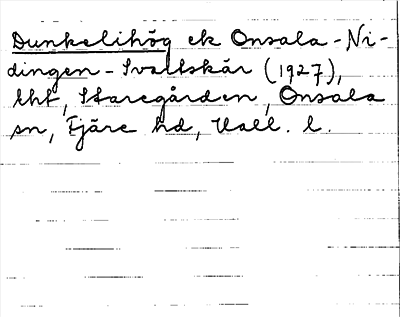 Dunkelihög ek Onsala - Ni-
dingen - Svallskär (1927),
tht, Staregården, Onsala
sn, Fjäre hd, Hall. l.